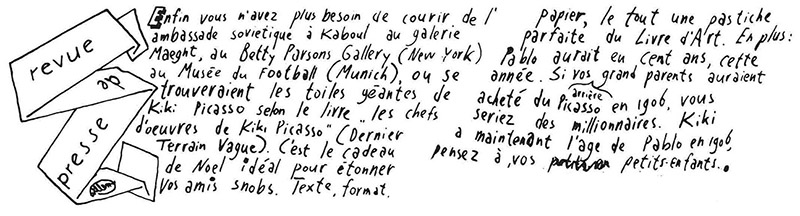 revue
de
presse
Enfin vous n'avez plus besoin de courir de l'
ambassade sovietique à Kaboul au galerie
Maeght, au Betty Parsons Gallery (New York)
au Musée du Football (Munich), ou se
trouveraient les toiles géantes de
Kiki Picasso selon le livre „les chefs
d'oeuvres de Kiki Picasso" (Dernier
Terrain Vague). C'est le cadeau
de Noel idéal pour étonner
vos amis snobs. Texte, format,
papier, le tout une pastiche
parfaite du Livre d'Art. En plus:
Pablo aurait eu cent ans, cette
année. Si vos grand parents auraient
arrière
acheté du Picasso en 1906, vous
seriez des millionnaires. Kiki
a maintenant l'age de Pablo en 1906,
pensez à vos petits-enfants..